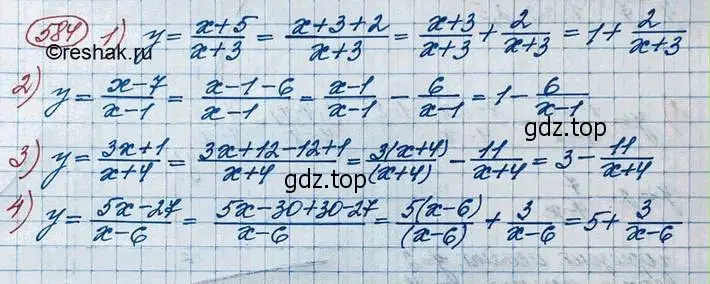 584 1) y = (x+5)/(x+3) = (x+3+2)/(x+3) = (x+3)/(x+3) + 2/(x+3) = 1 + 2/(x+3)
©reshak.ru
2) y = (x-7)/(x-1) = (x-1-6)/(x-1) = (x-1)/(x-1) - 6/(x-1) = 1 - 6/(x-1)
gdz.top
3) y = (3x+1)/(x+4) = (3x+12-12+1)/(x+4) = 3(x+4)/(x+4) - 11/(x+4) = 3 - 11/(x+4)
gdz.top
4) y = (5x-27)/(x-6) = (5x-30+30-27)/(x-6) = 5(x-6)/(x-6) + 3/(x-6) = 5 + 3/(x-6)